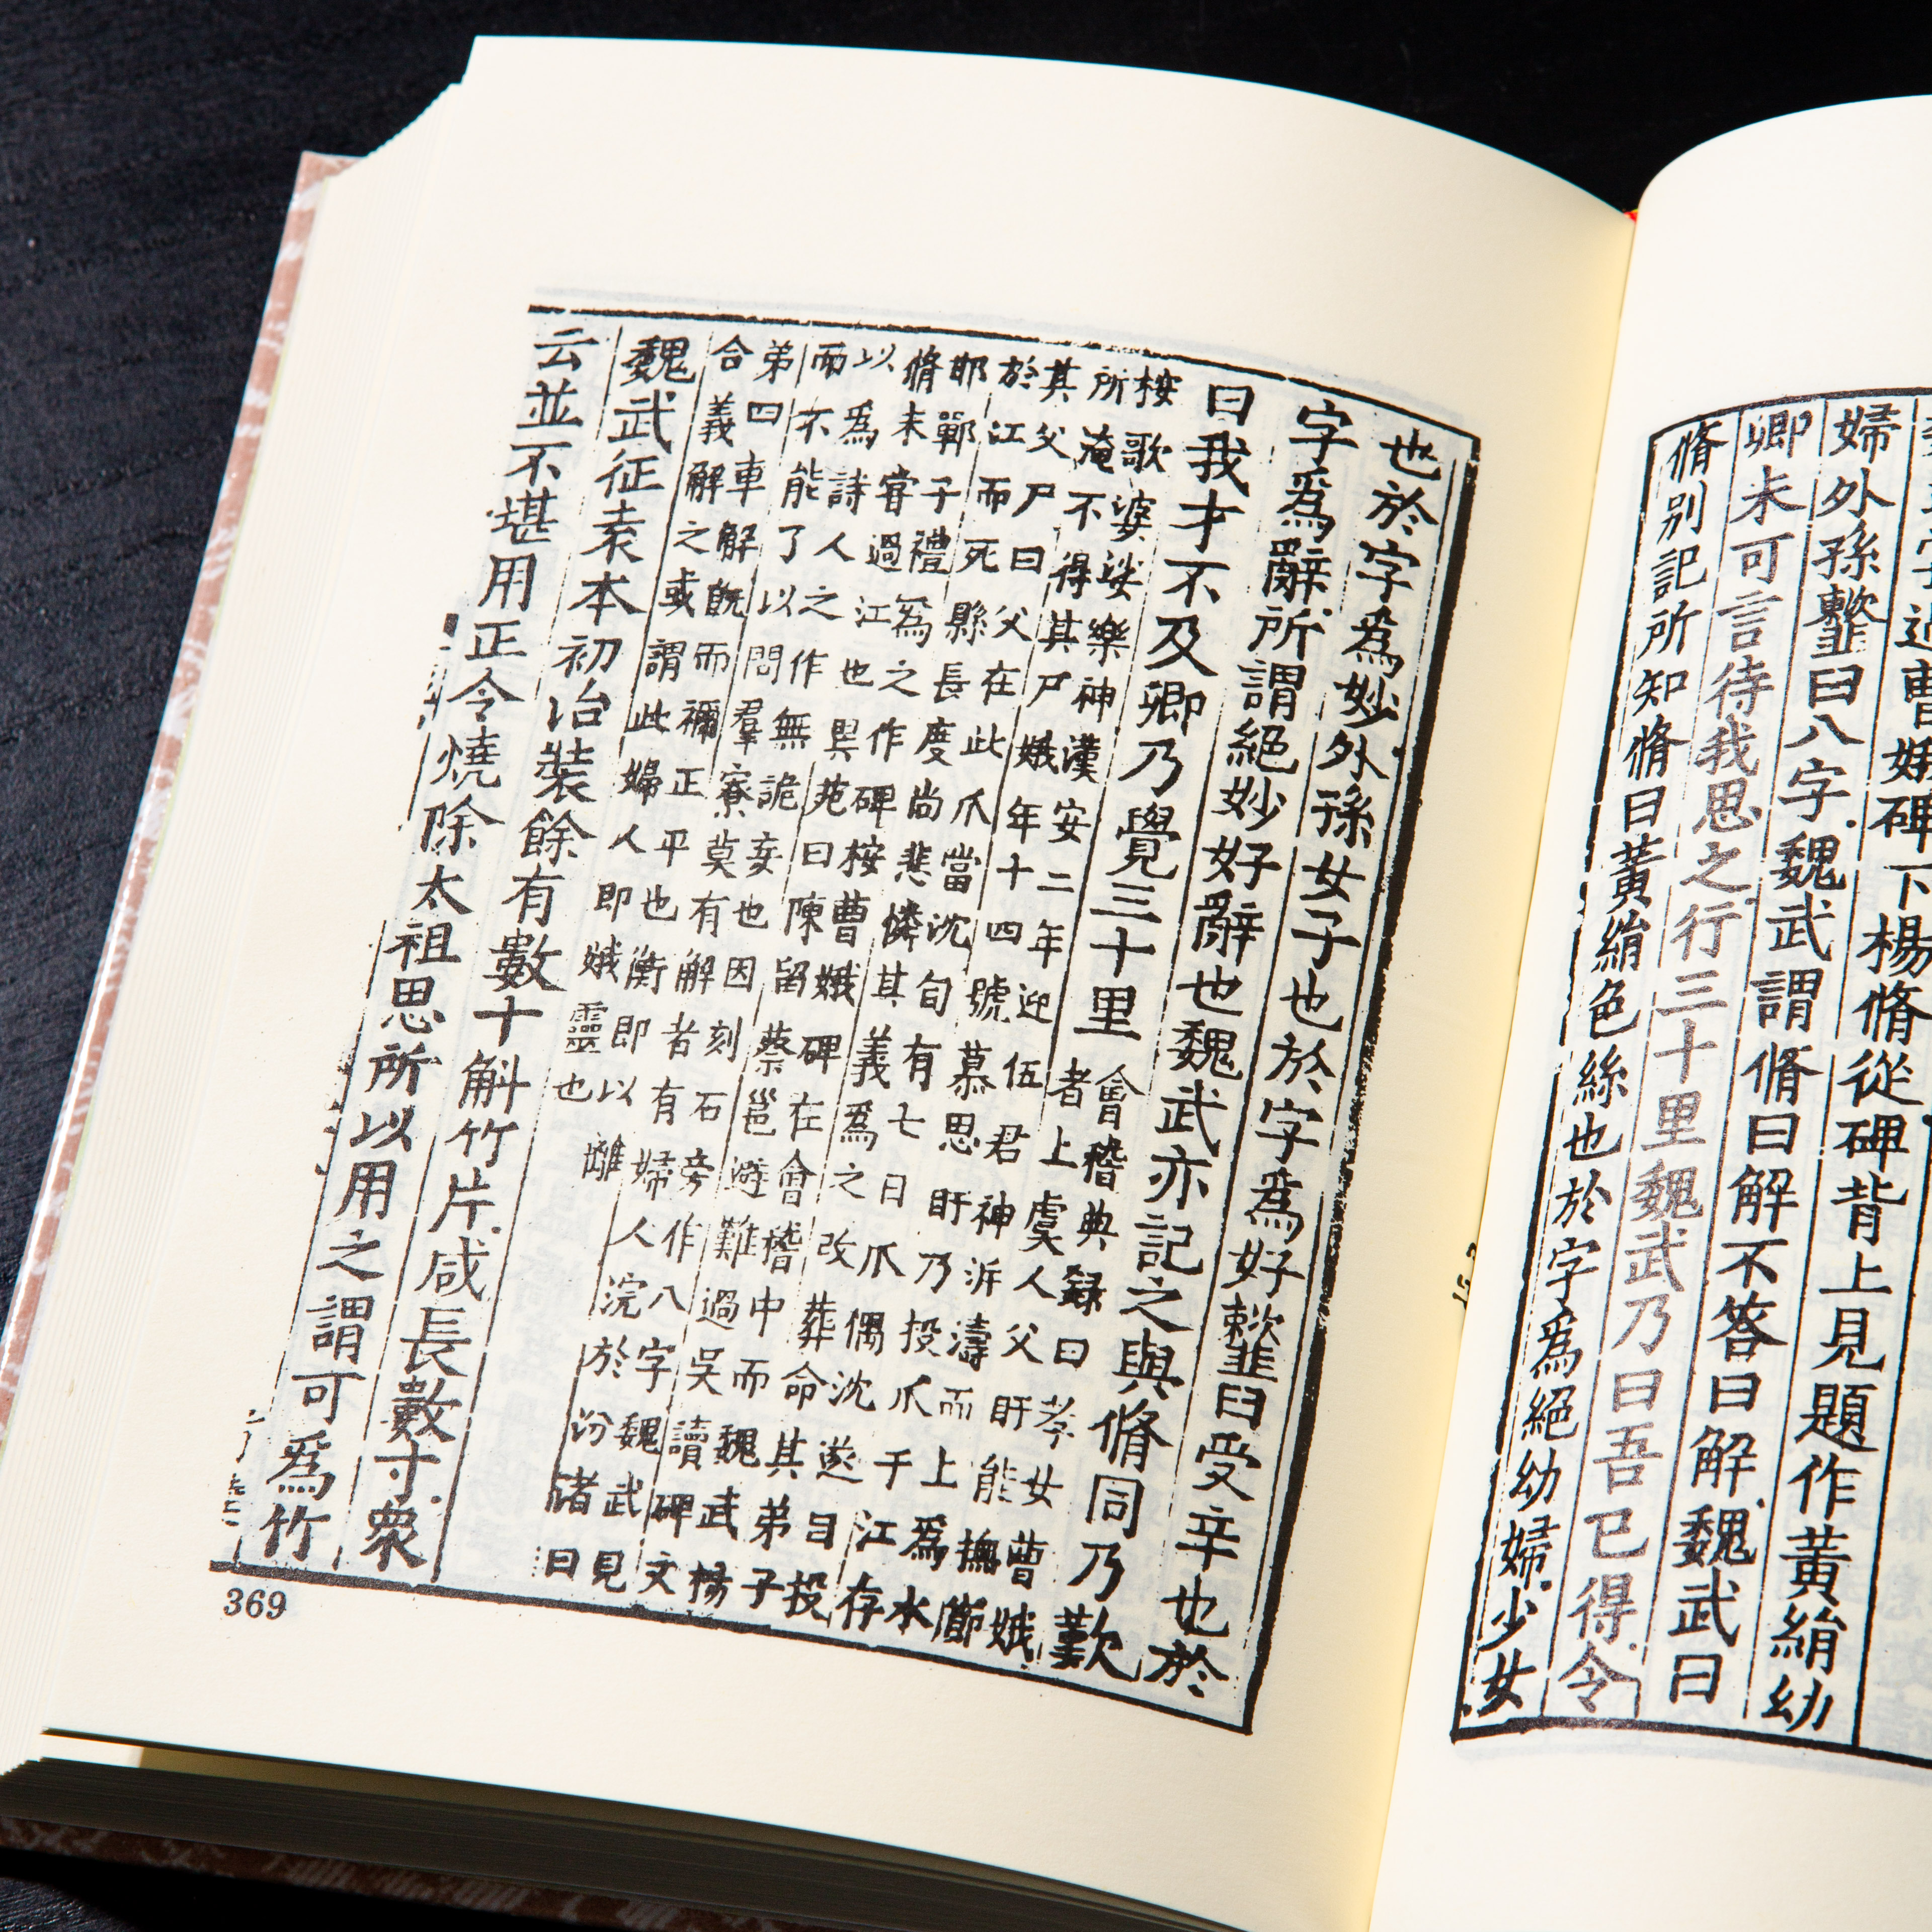 過曹娥碑下楊脩從碑背上見題作黃絹幼
婦外孫韲臼八字魏武謂脩曰解不答曰解魏武曰
卿未可言待我思之行三十里魏武乃曰吾已得令
脩别記所知脩曰黃絹色絲也於字爲絕幼婦少女
也於字爲妙外孫女子也於字爲好韲臼受辛也於
字爲辭所謂絕妙好辭也魏武亦記之與脩同乃歎
曰我才不及卿乃覺三十里
會稽典錄曰孝女曹娥
者上虞人父盱能撫節
桉歌婆娑樂神漢安二年迎伍君神泝濤而上爲水
所淹不得其尸娥年十四號慕思盱乃投瓜于江存
其父尸曰父在此瓜當沈旬有七日瓜偶沈遂自投
於江而死縣長度尚悲憐其義爲之改葬命其弟子
邯鄲子禮爲之作碑桉曹娥碑在會稽中而魏武楊
脩未甞過江也異苑曰陳留蔡邕避難過吳讀碑文
以爲詩人之作無詭妄也因刻石旁作八字魏武見
而不能了以問羣寮莫有解者有婦人浣於汾渚曰
弟四車解旣而禰正平也衡即以離
合義解之或謂此婦人即娥靈也
魏武征袁本初治裝餘有數十斛竹片咸長數寸衆
云並不堪用正令燒除太祖思所以用之謂可爲竹
369